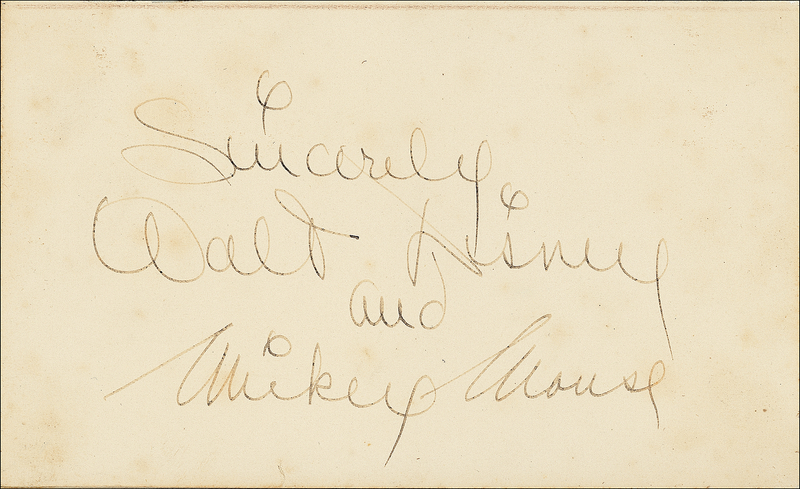 Sincerely,
Walt Disney
and
Mickey Mouse